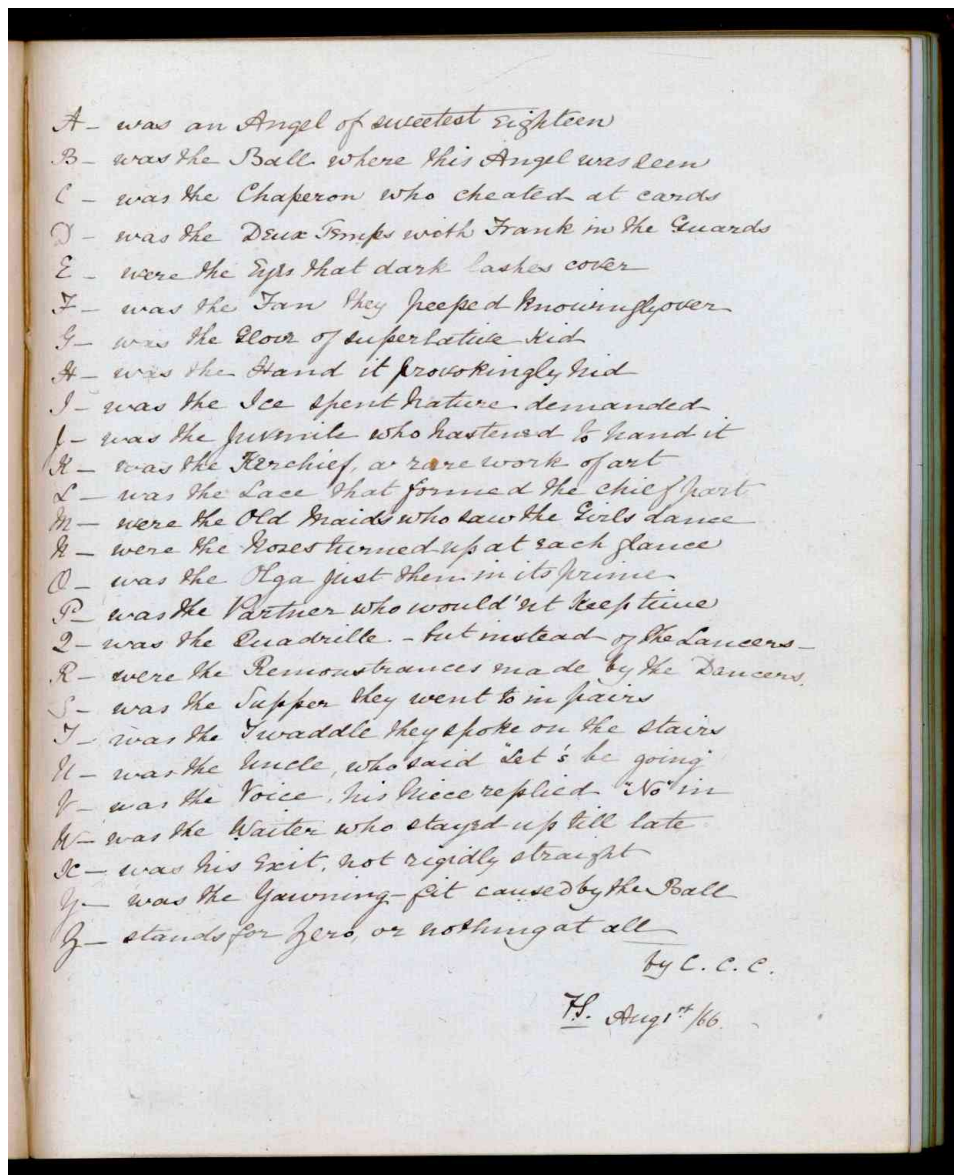 A - was an Angel of sweetest Eighteen
B - was the Ball where this Angel was seen
C - was the Chaperon who cheated at cards
D - was the Deux Temps with Frank in the Guards
E - were the Eyes that dark lashes cover
F - was the Fan they peeped knowingly over
G - was the Glove of superlative Kid
H - was the Hand it provokingly hid
I - was the Ice spent Nature demanded
J - was the Juvenile who hastened to hand it
K - was the Kerchief, a rare work of art
L - was the Lace that formed the chief part
M - were the Old Maids who saw the Girls dance
N - were the Noses turned up at each glance
O - was the Olga just then in its prime
P - was the Partner who would'nt keep time
Q - was the Quadrille - but instead of the Lancers -
R - were the Remonstrances made by the Dancers.
S - was the Supper they went to in pairs
T - was the Twaddle they spoke on the stairs
U - was the Uncle, who said "Let's be going"
V - was the Voice, his Niece replied "No" in
W - was the Waiter who stayed up till late
X - was his Exit, not rigidly straight
Y - was the Yawning-fit caused by the Ball
Z - stands for Zero, or nothing at all
by C. C. C.
F.S. Aug 1st /66.